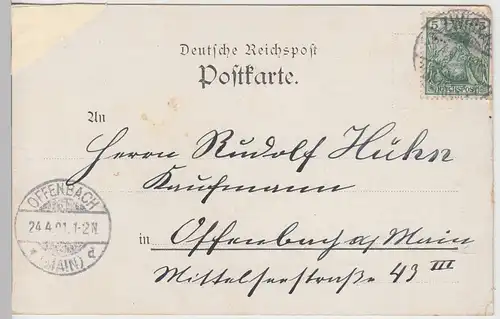 Deutsche Reichspost
Postkarte.
5
5
REICHSPOST
An
Herrn Rudolf Huhn
Kaufmann
in Offenbach a/ Main
Mittelseestraße 43 III
OFFENBACH
24.4.01.1-2N.
* (MAIN) d